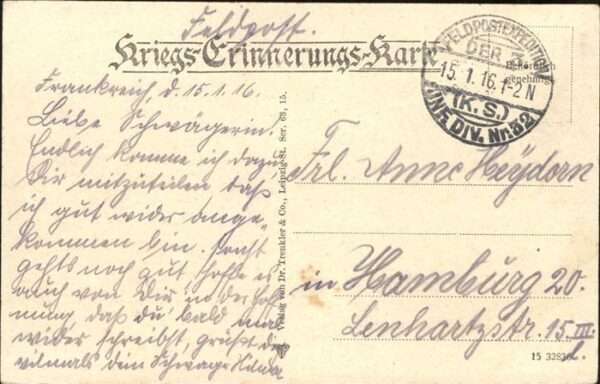 Feldpost.
Kriegs-Erinnerungs-Karte
FELDPOSTEXPEDITION
DER
15.1.16.1-2N
(K.S.)
INF.DIV. Nr.
Behördlich
genehmigt
Frankreich, d. 15.1.16.
Liebe Schwägerin.
Endlich komme ich dazu
Dir mitzuteilen daß
ich gut wider ange
kommen bin. Sonst
gehts noch gut, hoffe es
auch von Dir in der Hoff
nung, daß du bald mal
wider schreibst, grüßt dich
vilmals dein Schwager
Verlag von Dr. Trenkler & Co., Leipzig-St. Ser. 63, 15.
Frl. Anne Heydorn
in Hamburg 20.
Lenhartzstr. 15. III.
l.
15